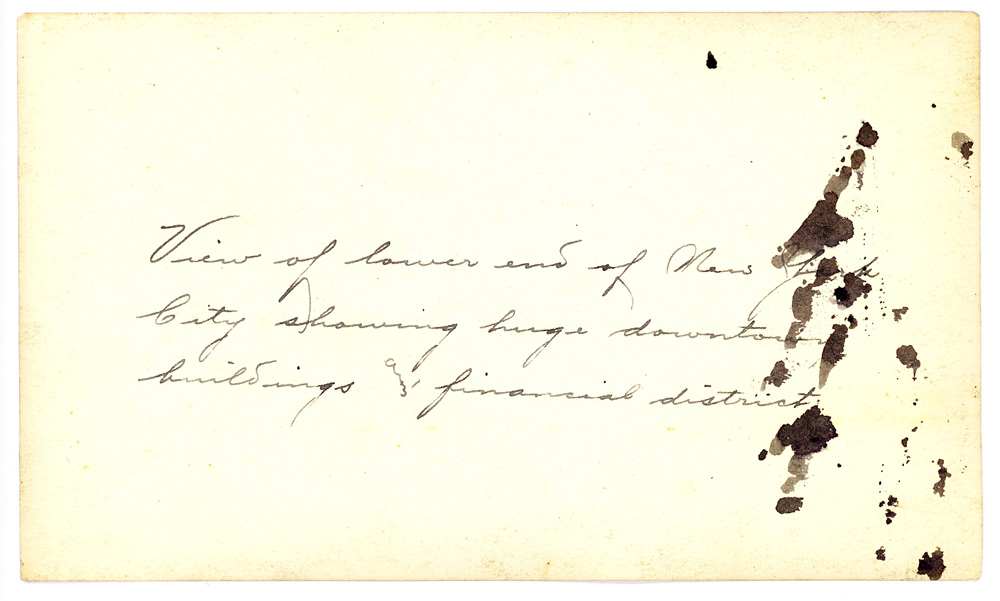 View of lower end of New York
City showing huge downtown
buildings and financial district